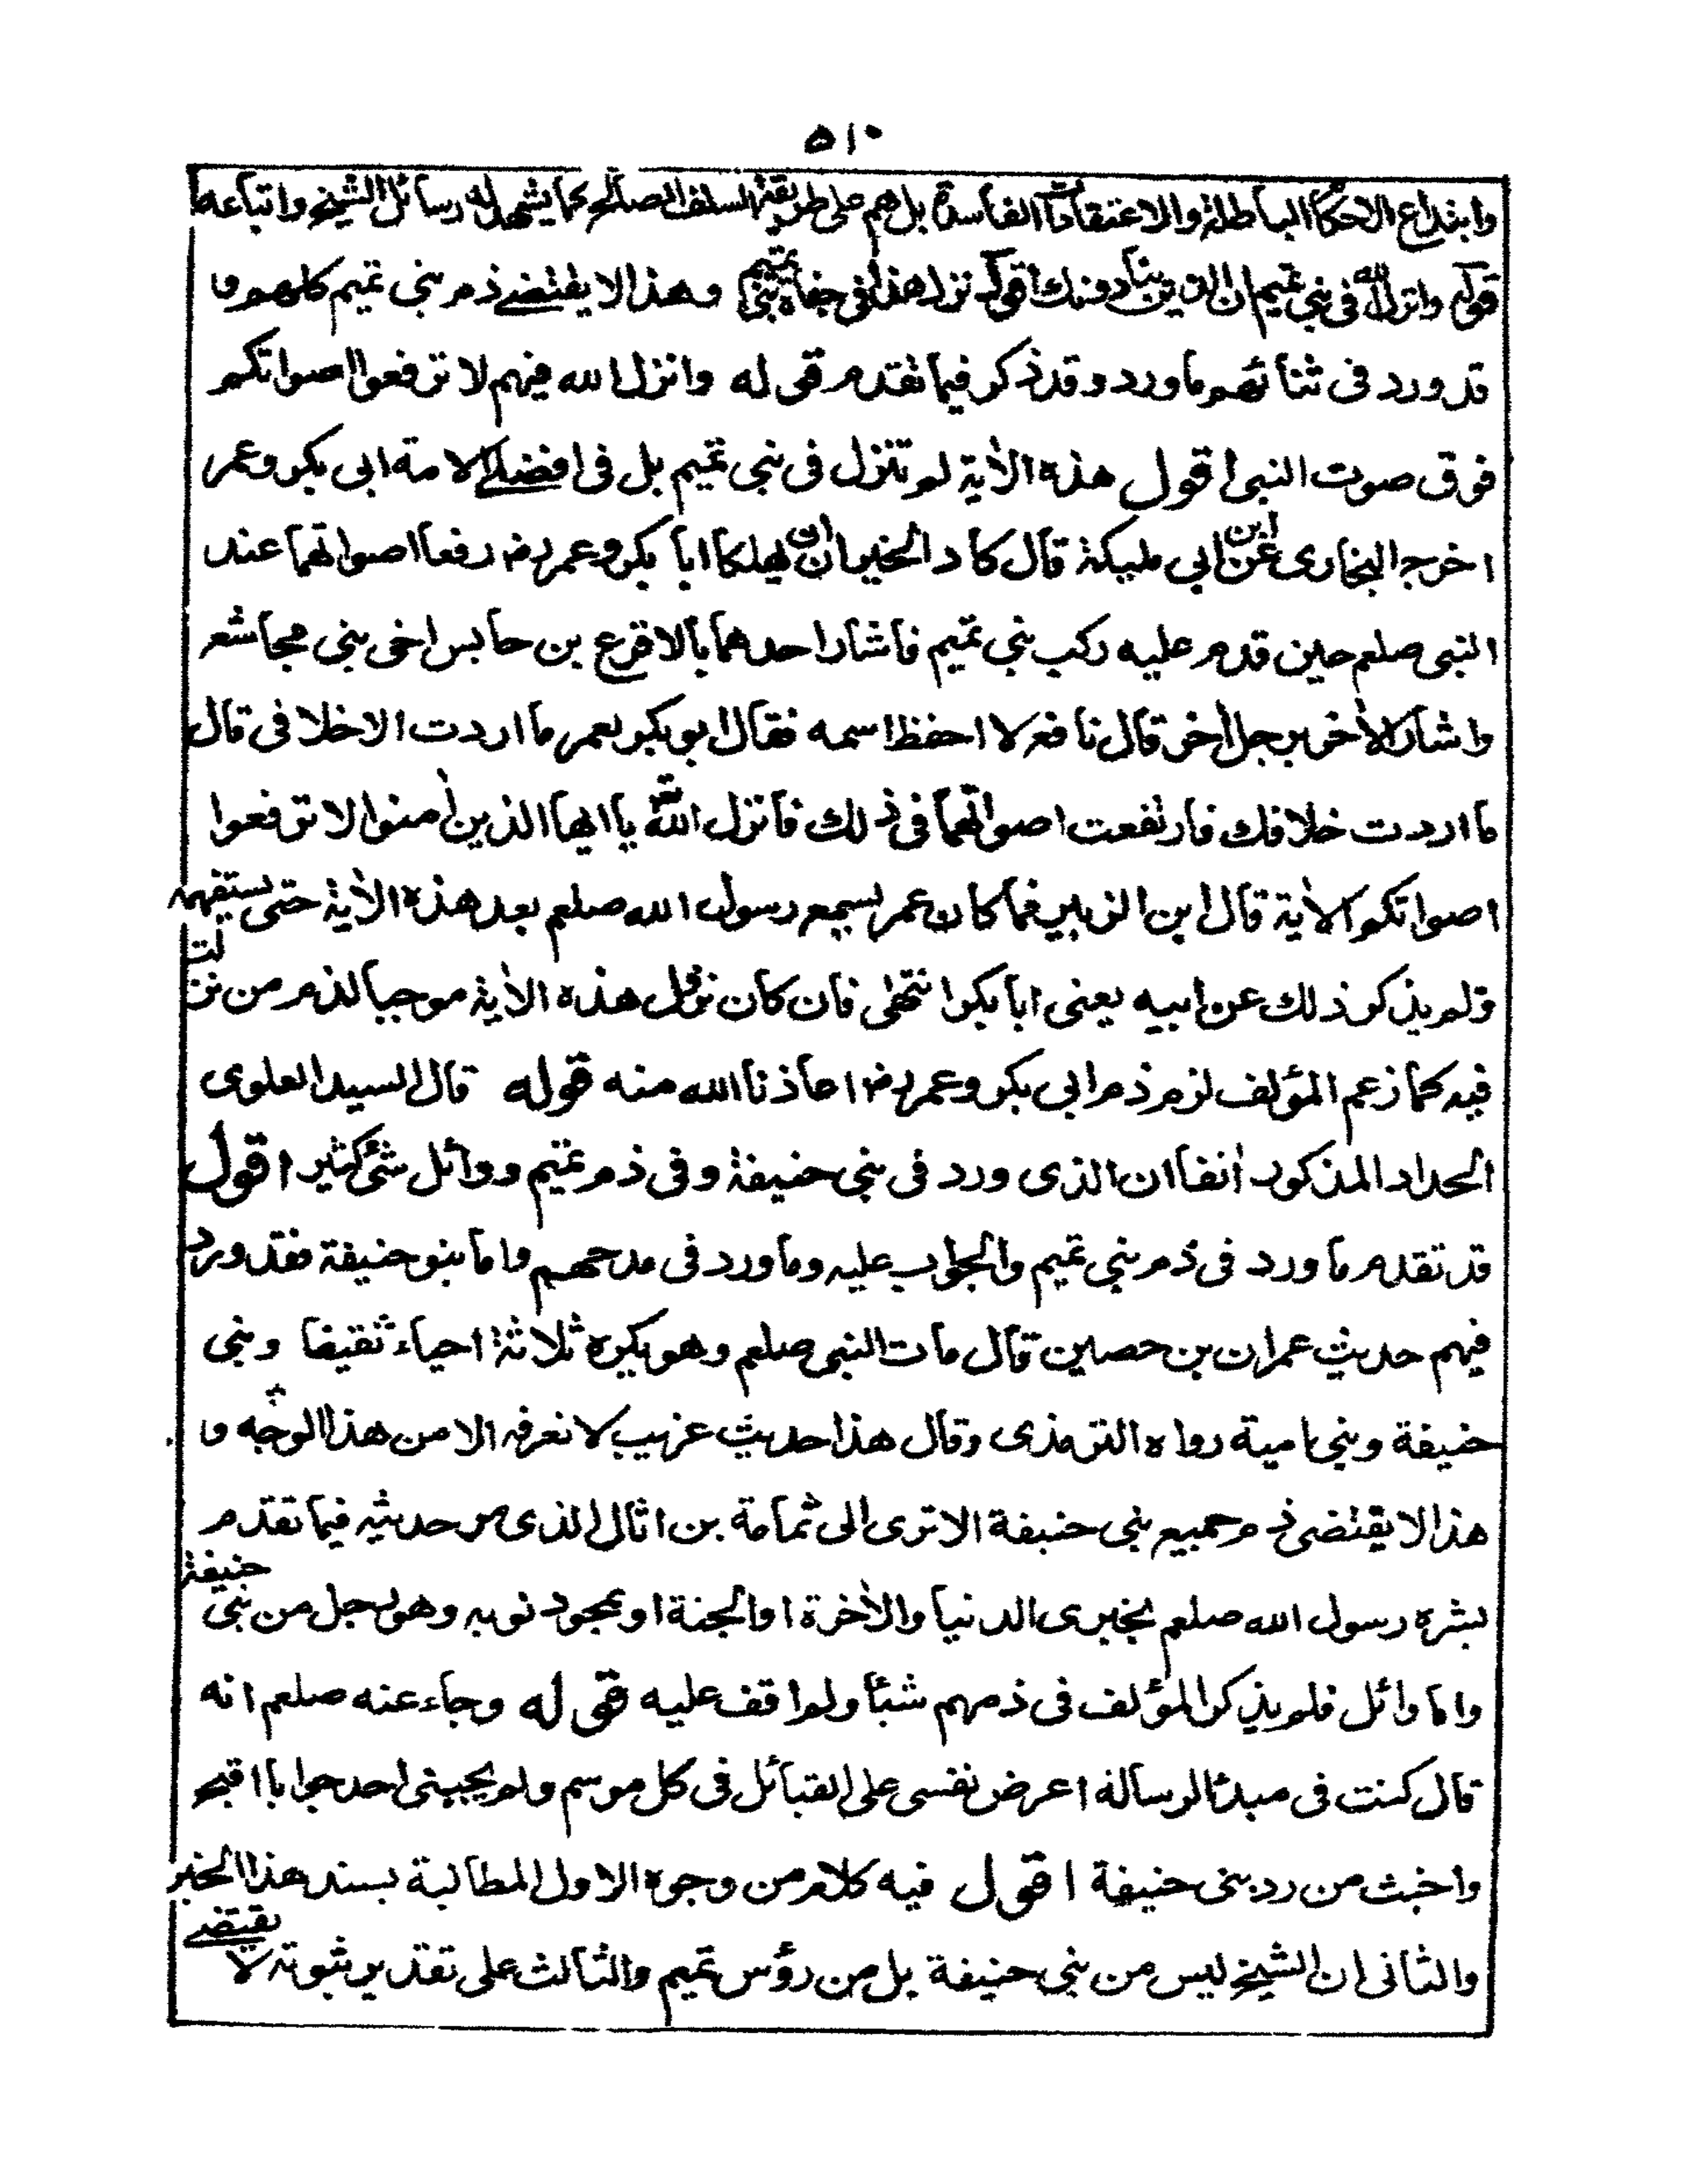 ٥١٠
وابتداع الاحكام الباطلة والاعتقادات الفاسدة بل هم على طريقة السلف الصالح كما يشهد له رسائل الشيخ واتباعه
قوله وانزل الله في بني تميم ان الذين ينادونك اقول نزل هذا في جفاة بني تميم وهذا لا يقتضے ذم بني تميم كلهم و
قد ورد فی ثنائهم ما ورد وقد ذكر فيما تقدم قوله وانزل الله فيهم لا ترفعوا اصواتكم
فوق صوت النبی اقول هذه الآية لم تنزل فی بنی تميم بل فی افضلے الامة ابی بكر وعمر
اخرج البخاری عن ابن ابی مليكة قال كاد الخيران ان يهلكا ابا بكر وعمر رض رفعا اصواتهما عند
النبی صلعم حين قدم عليه ركب بنی تميم فاشار احدهما بالاقرع بن حابس اخی بنی مجاشع
واشار الآخر برجل آخر قال نافع لا احفظ اسمه فقال ابو بكر لعمر ما اردت الا خلافی قال
ما اردت خلافك فارتفعت اصواتهما فی ذلك فانزل الله يا ايها الذين اٰمنوا لا ترفعوا
اصواتكم الآية قال ابن الزبير فما كان عمر يسمع رسول الله صلعم بعد هذه الآية حتى يستفهمه
ولم يذكر ذلك عن ابيه يعنی ابا بكر انتهٰى فان كان نزول هذه الآية موجبا لذم من نزلت
فيه كما زعم المؤلف لزم ذم ابی بكر وعمر رض اعاذنا الله منه قوله قال السيد العلوی
الحداد المذكور اٰنفا ان الذی ورد فی بنی حنيفة وفی ذم تميم ووائل شئ كثير اقول
قد تقدم ما ورد فی ذم بنی تميم والجواب عليه وما ورد فی مدحهم واما بنو حنيفة فقد ورد
فيهم حديث عمران بن حصين قال مات النبی صلعم وهو يكره ثلاثة احياء ثقيفا وبنی
حنيفة وبنی امية رواه الترمذی وقال هذا حديث غريب لا نعرفه الا من هذا الوجه و
هذا لا يقتضی ذم جميع بنی حنيفة الا ترى الى ثمامة بن اثال الذی مر حديثه فيما تقدم
بشره رسول الله صلعم بخيری الدنيا والآخرة او الجنة او بمجود توبه وهو رجل من بنی حنيفة
واما وائل فلم يذكر المؤلف فی ذمهم شيئا ولم اقف عليه قوله وجاء عنه صلعم انه
قال كنت فی مبدئ الرسالة اعرض نفسی على القبائل فی كل موسم ولم يجيبنی احد جوابا اقبح
واخبث من رد بنی حنيفة اقول فيه كلام من وجوه الاول المطالبة بسند هذا الخبر
والثانی ان الشيخ ليس من بنی حنيفة بل من رؤس تميم والثالث على تقدير ثبوته لا يقتضے